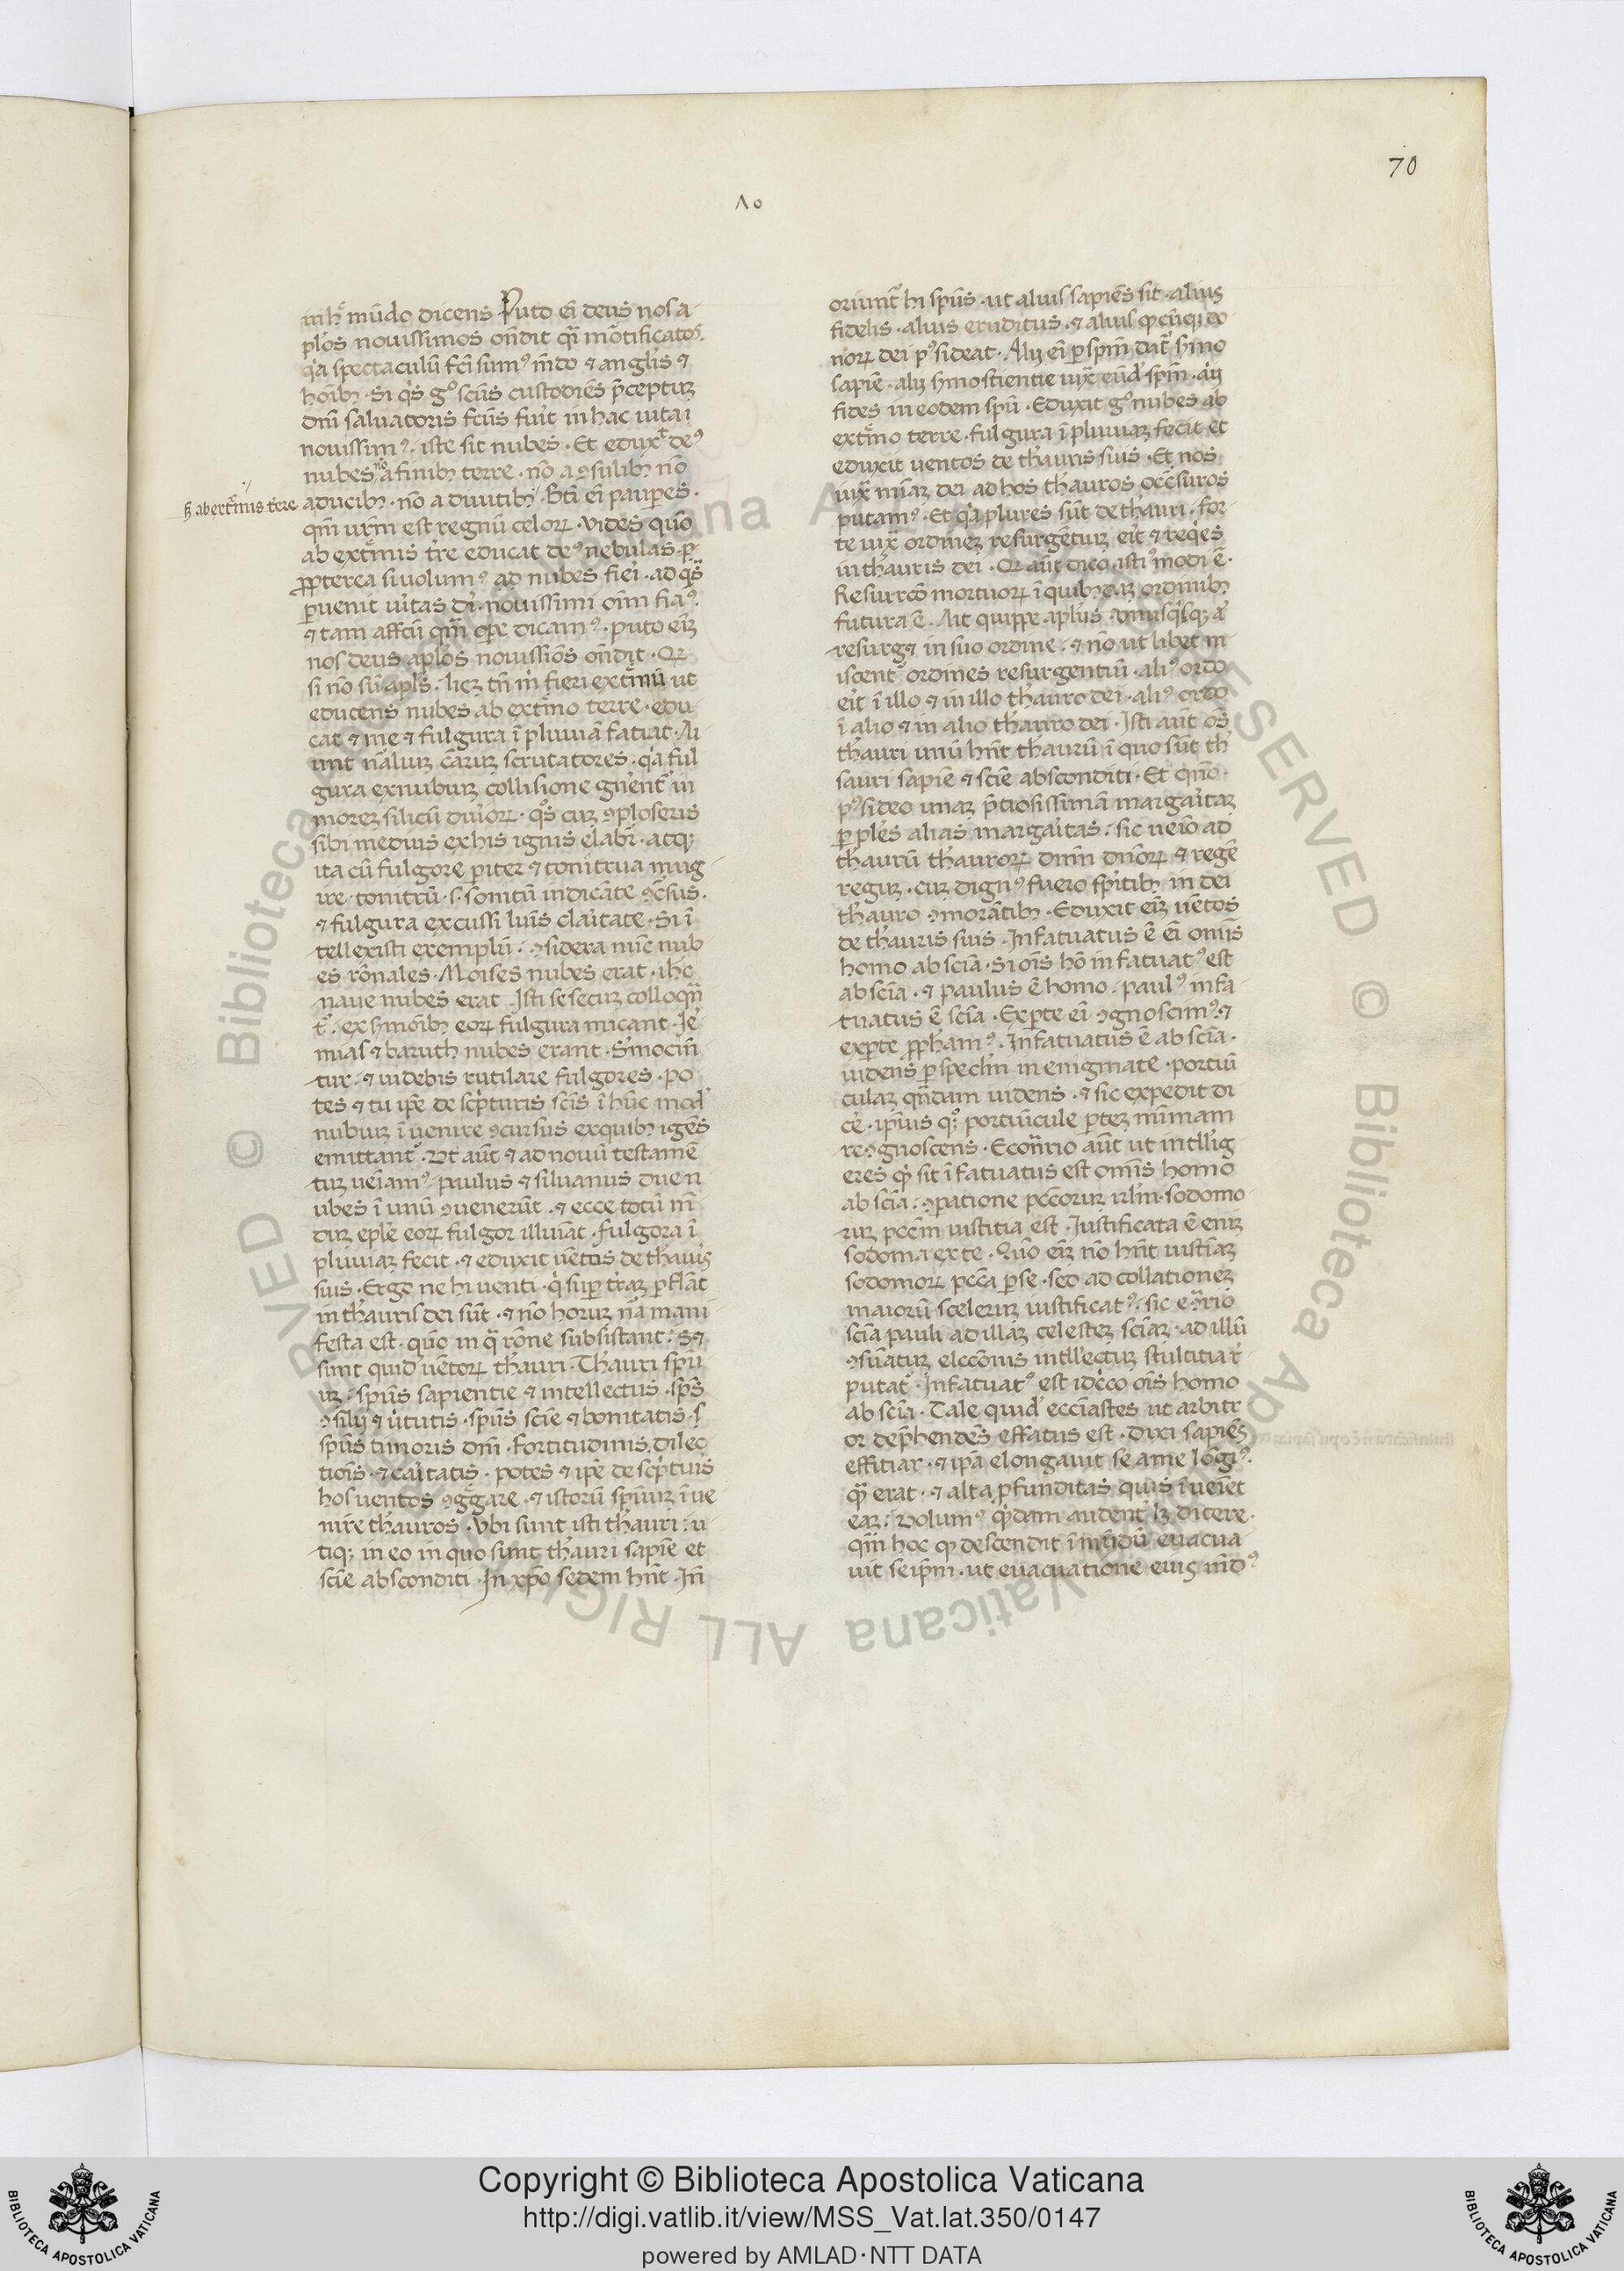 70
Λο
mūdo dicens Puto eī deus nos a-
pl'os nouissimos ondit
spectaculū sumꝰ mdo ⁊ angl'is ⁊
scūs custodiēs p̄ceptuꝫ
dn̄i saluatoris fcūs fuit in hac uita
nouissimꝰ. iste sit nubes. Et deꝰ
nubes nō a finibꝫ terre. nō a ꝯsulibꝫ nō
ab ext̄mis terre
a ducibꝫ. nō a diuitibꝫ. Bt̄i eī paup̄es.
qm̄ ur̄m est regnū celoꝝ. Vides quō
ab ext̄mis tr̄e educat deꝰ nebulas.
ꝓpterea si uolumꝰ ad nubes fieri. ad
ꝑuenit di. nouissimi oīm
⁊ tam opē dicamꝰ. puto eīꝫ
nos deus apl'os nouissiōs ondit.
si nō sū apl's. licꝫ tn̄ m̄ fieri ext̄mū ut
educens nubes ab ext̄mo terre. edu
cat ⁊ me ⁊ fulgura ī pluuiā faciat. Ai
unt scrutatores. qa ful
gura ex nubiuꝫ collisione in
moreꝫ silicū cuꝫ ꝯploseris
sibi medius ex his ignis elabr̄. atqꝫ
ita cū fulgore ꝑiter ⁊ tonitrua mug
ire. tonitrū. s. sonitū indicāte
⁊ fulgura excussi claritate. Si ī
tellexisti exemplū. ꝯsidera nūc nub
es rōnales. Moises nubes erat. ihc
naue nubes erat. Isti se secuꝫ
ex eoꝝ fulgura micant. Je
mias ⁊ baruch nubes erant.
tur. ⁊ uidebis rutilare fulgores. po
tes ⁊ tu ip̄e de sc̄pturis sc̄is ī hūc mod
nubiuꝫ īuenire ꝯcursus ex quibꝫ igēs
emittant. Ut aūt ⁊ ad nouū testamē
tuꝫ ueīamꝰ. paulus ⁊ siluanus due n
ubes ī unū ꝯuenerūt. ⁊ ecce totū m̄
duꝫ eple eoꝝ fulgor fulgora ī
pluuiaꝫ fecit. ⁊ eduxit uētos de thauris
suis. Ergo ne hi uenti. qi suꝑ ꝑflāt
in thauris dei sūt. ⁊ nō horuꝫ mani
festa est. quō in rōne subsistant.
sunt quid uētoꝝ thauri. Thauri
spūs sapientie ⁊ intellectus. spūs
ꝯsilij ⁊ ututis. spūs sciē ⁊ bonitatis.
spūs timoris dn̄i. fortitudinis. dilec
tiōis. ⁊ caritatis. potes ⁊ ip̄e de sc̄pturis
hos uentos ꝯggare. ⁊ istorū īue
nire thauros. Vbi sunt isti thauri. u
tiqꝫ in eo in quo sunt thauri sapiē et
sciē absconditi. In xpō sedem hn̄t.
hi spūs. ut alius sapiēs sit. alius
fidelis. alius eruditus. ⁊ alius do
noꝝ dei pꝰsideat. Alij eī ꝑ spm̄ dat̄
sapiē. alij scientie iuxͣ spm̄.
fides in eodem spū. Eduxit gͦ nubes ab
ext̄mo terre. fulgura ī pluuiaꝫ fecit et
eduxit uentos de thauris suis. Et nos
dei ad hos thauros
putamꝰ. Et qa plures sūt dei thauri. for
te ordineꝫ resurgētiuꝫ erit ⁊ reqes
in thauris dei. aūt dico. istiꝰmodi ē.
Resurcō mortuoꝝ ī quibꝫdaꝫ ordinibꝫ
futura ē. Ait quippe apl'us.
resurg⁊ in suo ordine. ⁊ nō ut libet
ordines resurgentiū. aliꝰ ordo
erit ī illo ⁊ in illo thauro dei. aliꝰ ordo
ī alio ⁊ in alio thauro dei. Isti aūt oēs
thauri unū hn̄t thaurū ī quo sūt th
sauri sapiē ⁊ sciē absconditi. Et
pꝰsideo unaꝫ p̄ciosissimā
ꝑ pl'es alias sic ad
thaurū thauroꝝ dn̄m dn̄oꝝ ⁊ regē
reguꝫ. cuꝫ dignꝰ fuero in dei
thauro ꝯmorātibꝫ. Eduxit eīꝫ uētos
de thauris suis. Infatuatus ē eī omīs
homo ab sciā. Si oīs hō infatuatꝰ est
ab sciā. ⁊ paulus ē homo. paulꝰ infa-
tuatus ē sciā. Ex ꝑte eī ꝯgnoscimꝰ. ⁊
ex ꝑte ꝓpham̄ꝰ. Infatuatus ē ab sciā.
uidens ꝑ speclm̄ in enigmate. portiū
culaꝫ qn̄dam uidens. ⁊ sic expedit di
ce. ipīus portiūcule ꝑteꝫ minimam
reꝯgnoscens. Econrio aūt ut intllig
eres sit īfatuatus est omīs homo
ab sciā. ꝯpatione pccoruꝫ sodomo
ruꝫ iustitia est. Iustificata ē eniꝫ
sodoma ex te. Quō eīꝫ nō hn̄t iustiāꝫ
sodomoꝝ pcca ꝑ se. sed ad collationeꝫ
maiorū sceleruꝫ iustificatꝰ. sic
sciā pauli ad illaꝫ celesteꝫ sciāꝫ. ad illū
intllectuꝫ stultitia
putat̄. Infatuatꝰ est idcco oīs homo
ab sciā. Tale quid ecciastes ut arbitr
or dep̄hendēs effatus est. Dixi sapiēs
effitiar. ⁊ ipā elongauit se a me lōgiꝰ.
qͣ̄ erat. ⁊ alta ꝓfunditas quis īueīet
eaꝫ. Volumꝰ qdam audent dicere.
qm̄ hoc descendit ī mūdū euacua
uit seip̄m. ut euacuatione eius mdꝰ
© Biblioteca Apostolica Vaticana ALL RIGHTS RESERVED
Copyright © Biblioteca Apostolica Vaticana
http://digi.vatlib.it/view/MSS_Vat.lat.350/0147
powered by AMLAD·NTT DATA
BIBLIOTECA APOSTOLICA VATICANA
BIBLIOTECA APOSTOLICA VATICANA